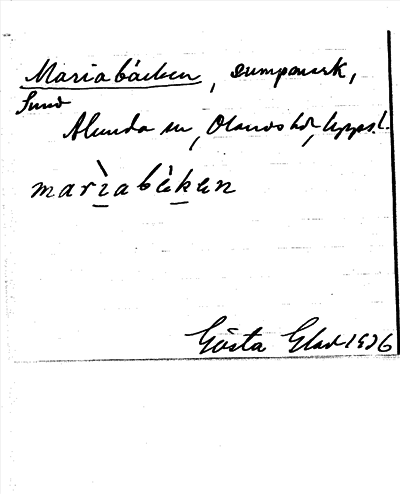 Mariabäcken, sumpmark,
Sund
Alunda sn, Olands hd, Upps. l.
marìabäken
Gösta Glad 1926